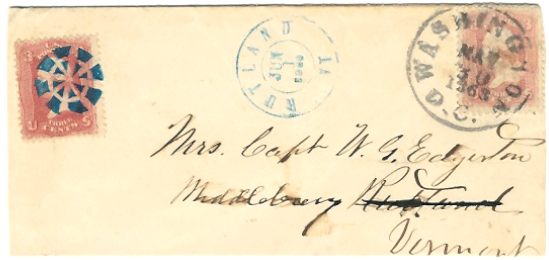 RUTLAND VT
JUN
1
1863
WASHINGTON
MAY
1863
D.C.
U S
THREE
CENTS
Mrs. Capt W. G. Edgerton
Middlebury Rutland
Vermont